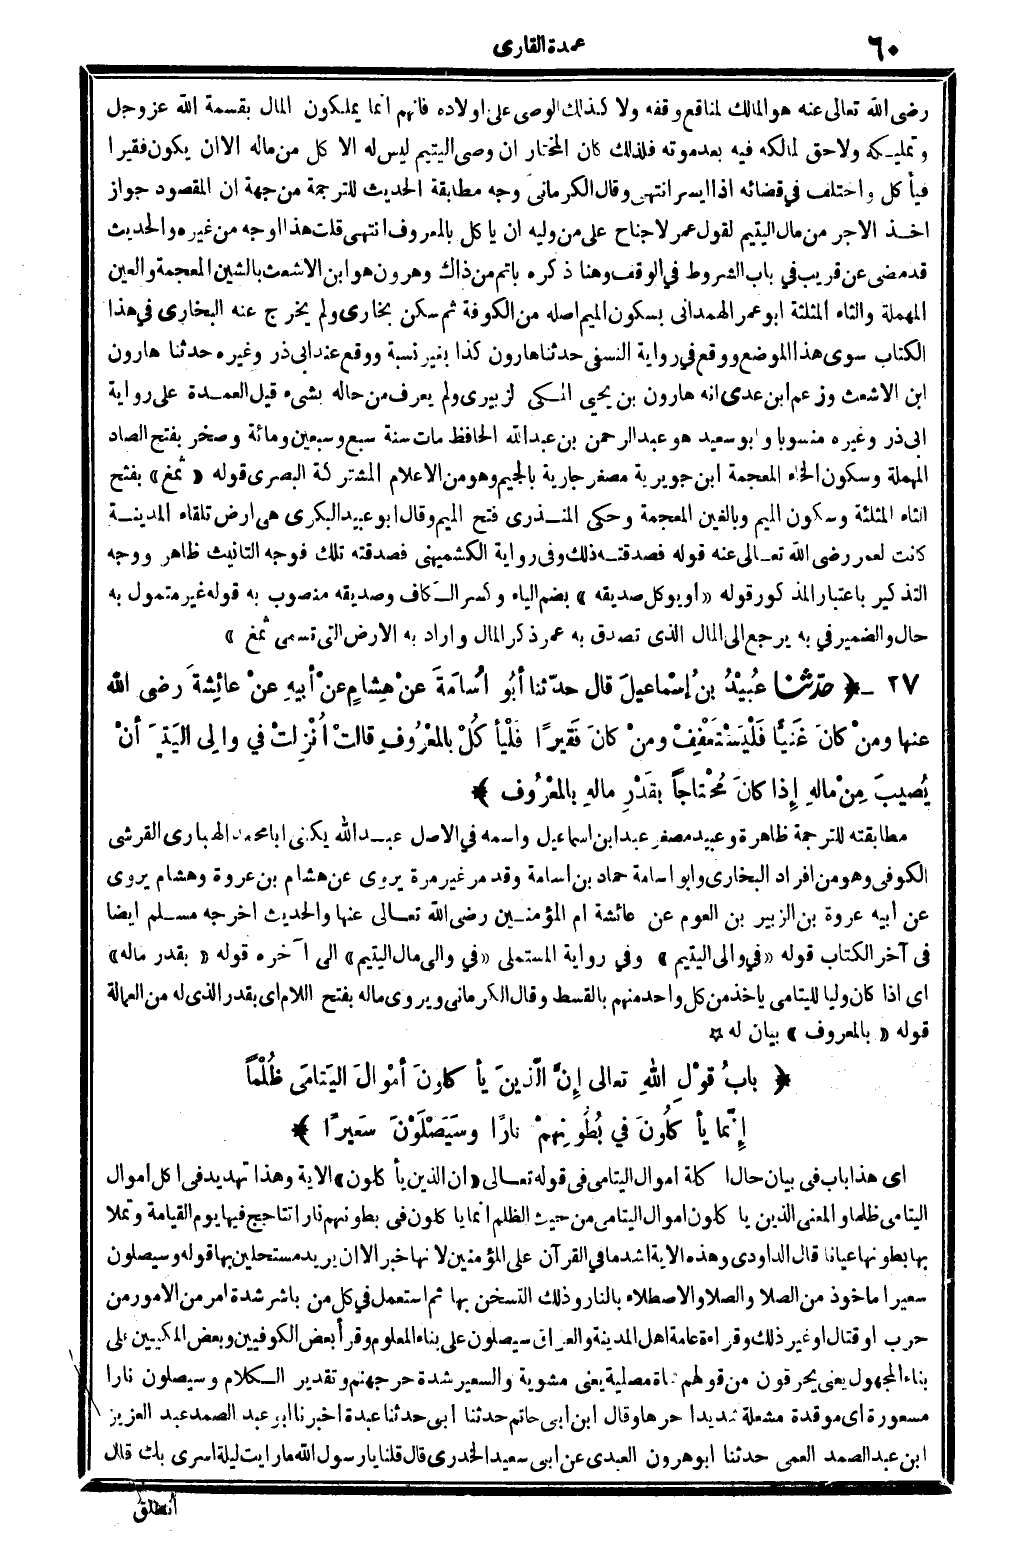 ٦٠
عمدة القارى
رضى الله تعالى عنه هو المالك لمنافع وقفه ولا كذلك الوصى على اولاده فانهم انما يملكون المال بقسمة الله عز وجل
وتمليكه ولاحق لمالكه فيه بعد موته فلذلك كان المختار ان وصى اليتيم ليس له الا كل من ماله الا ان يكون فقيرا
فيأ كل واختلف في قضائه اذا ايسر انتهى وقال الكرمانى وجه مطابقة الحديث للترجمة من جهة ان المقصود جواز
اخذ الاجر من مال اليتيم لقول عمر لاجناح على من وليه ان ياكل بالمعروف انتهى قلت هذا اوجه من غيره والحديث
قد مضى عن قريب في باب الشروط في الوقف وهنا ذكره باتم من ذاك وهرون هو ابن الاشعث بالشين المعجمة والعين
المهملة والثاء المثلثة ابو عمر الهمدانى بسكون الميم اصله من الكوفة ثم سكن بخارى ولم يخرج عنه البخارى في هذا
الكتاب سوى هذا الموضع ووقع في رواية النسفى حدثنا هارون كذا بغير نسبة ووقع عند ابى ذر وغيره حدثنا هارون
ابن الاشعث وزعم ابن عدى انه هارون بن يحيى المكى لزبيرى ولم يعرف من حاله بشىء قيل العمدة على رواية
ابى ذر وغيره منسوبا وابو سعيد هو عبد الرحمن بن عبد الله الحافظ مات سنة سبع وسبعين ومائة وصخر بفتح الصاد
المهملة وسكون الخاء المعجمة ابن جويرية مصغر جارية بالجيم وهو من الاعلام المشتركة البصرى قوله « ثمغ » بفتح
الثاء المثلثة وسكون الميم وبالغين المعجمة وحكى المنذرى فتح الميم وقال ابو عبيد البكرى هى ارض تلقاء المدينة
كانت لعمر رضى الله تعالى عنه قوله فصدقته ذلك وفى رواية الكشميهنى فصدقته تلك فوجه التانيث ظاهر ووجه
التذكير باعتبار المذكور قوله « او يوكل صديقه » بضم الياء وكسر الكاف وصديقه منصوب به قوله غير متمول به
حال والضمير في به يرجع الى المال الذى تصدق به عمر ذكر المال واراد به الارض التى تسمى ثمغ »
٢٧ - ﴿ حدّثنا عُبَيْدُ بنُ إسْماعيلَ قال حدّثنا أبُو أُسامَةَ عنْ هِشامٍ عنْ أبيهِ عنْ عائِشةَ رضى الله
عنها ومنْ كانَ غَنيًّا فَلْيَسْتَعْفِفْ ومنْ كانَ فَقيرًا فَلْيأ كُلْ بالمعْرُوفِ قالتْ أُنْزِلتْ في وا لِى اليَتيمِ أنْ
يُصيبَ مِنْ مالهِ إذا كانَ مُحْتاجًا بقَدْرِ مالهِ بالمعْرُوف ﴾
مطابقته للترجمة ظاهرة وعبيد مصغر عبد ابن اسماعيل واسمه في الاصل عبد الله يكنى ابا محمد الهبارى القرشى
الكوفى وهو من افراد البخارى وابو اسامة حماد بن اسامة وقد مر غير مرة يروى عن هشام بن عروة وهشام يروى
عن أبيه عروة بن الزبير بن العوم عن عائشة ام المؤمنين رضى الله تعالى عنها والحديث اخرجه مسلم ايضا
فى آخر الكتاب قوله « في والى اليتيم » وفي رواية المستملى « في والى مال اليتيم » الى آخره قوله « بقدر ماله »
اى اذا كان وليا لليتامى ياخذ من كل واحد منهم بالقسط وقال الكرمانى ويروى ماله بفتح اللام اى بقدر الذى له من العمالة
قوله « بالمعروف » بيان له ☆
﴿ بابُ قوْلِ اللهِ تعالى إنَّ الّذينَ يأ كلونَ أمْوالَ اليَتامَى ظُلْمًا
إنّما يأ كلُونَ في بُطُونِهِمْ نارًا وسَيَصْلَوْنَ سَعيرًا ﴾
اى هذا باب فى بيان حال اكلة اموال اليتامى فى قوله تعالى « ان الذين يأ كلون » الاية وهذا تهديد فى اكل اموال
اليتامى ظلما والمعنى الذين يا كلون اموال اليتامى من حيث الظلم انما يا كلون فى بطونهم نارا تتاجج فيها يوم القيامة وتملا
بها بطونها عيانا قال الداودى وهذه الاية اشد ما في القرآن على المؤمنين لانها خبر الا ان يريد مستحلين بها قوله وسيصلون
سعيرا ماخوذ من الصلا والصلا والاصطلاء بالنار وذلك التسخن بها ثم استعمل في كل من باشر شدة امر من الامور من
حرب او قتال او غير ذلك وقراءة عامة اهل المدينة والعراق سيصلون على بناء المعلوم وقرأ بعض الكوفيين وبعض المكيين على
بناء المجهول يعنى يحرقون من قولهم شاة مصلية يعنى مشوية والسعير شدة حر جهنم وتقدير الكلام وسيصلون نارا
مسعورة اى موقدة مشعلة شديدا حرها وقال ابن ابى حاتم حدثنا ابى حدثنا عبدة اخبرنا ابو عبد الصمد عبد العزيز
ابن عبد الصمد العمى حدثنا ابو هرون العبدى عن ابى سعيد الخدرى قال قلنا يا رسول الله ما رايت ليلة اسرى بك قال
انطلق